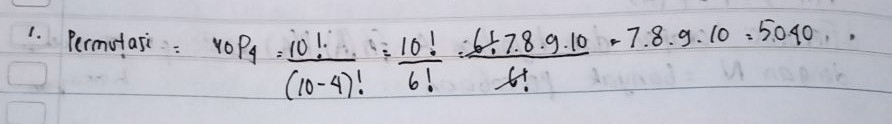 1. Permutasi = 10P4 = 10! / (10-4)! = 10! / 6! = 6!.7.8.9.10 / 6! = 7.8.9.10 = 5040